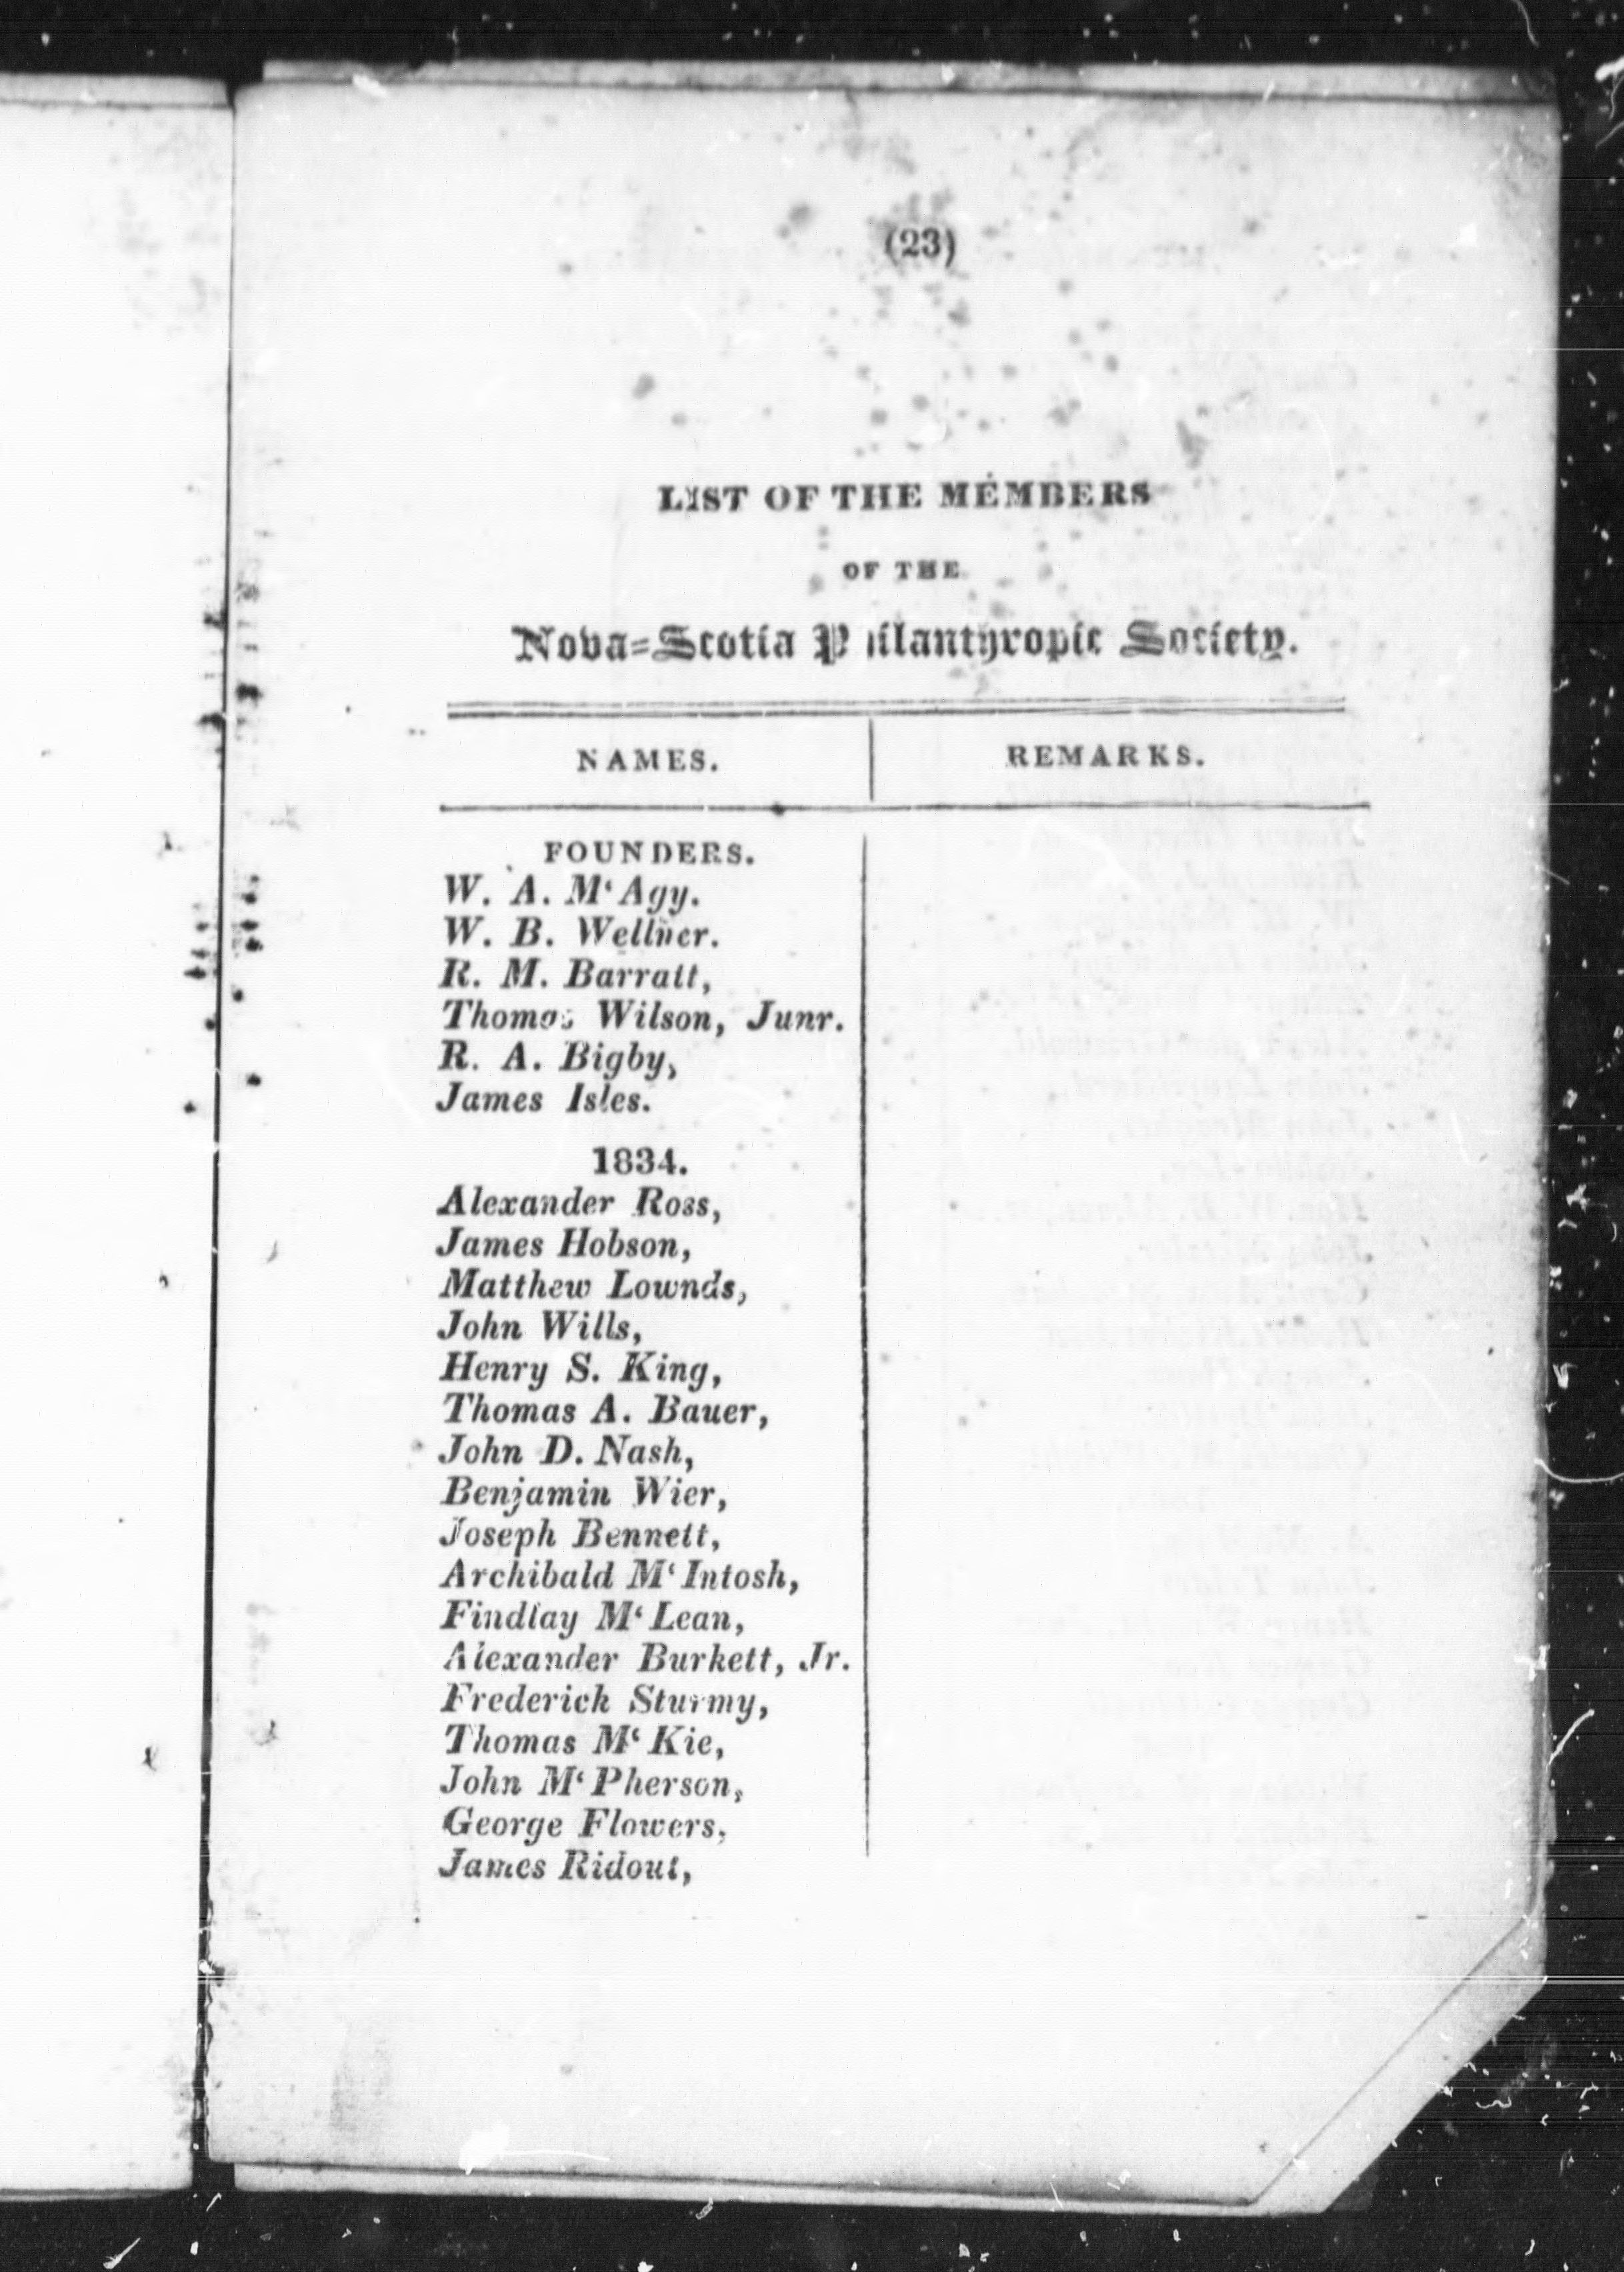 (23)
LIST OF THE MEMBERS
OF THE
Nova-Scotia Philanthropic Society.
NAMES.
REMARKS.
FOUNDERS.
W. A. M‘Agy.
W. B. Wellner.
R. M. Barratt,
Thomas Wilson, Junr.
R. A. Bigby,
James Isles.
1834.
Alexander Ross,
James Hobson,
Matthew Lownds,
John Wills,
Henry S. King,
Thomas A. Bauer,
John D. Nash,
Benjamin Wier,
Joseph Bennett,
Archibald M‘Intosh,
Findlay M‘Lean,
Alexander Burkett, Jr.
Frederick Sturmy,
Thomas M‘Kie,
John M‘Pherson,
George Flowers,
James Ridout,